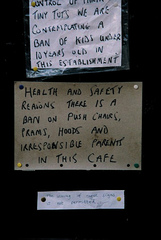 CONTROL OF
TINY TOTS WE ARE
CONTEMPLATING A
BAN OF KIDS UNDER
10 YEARS OLD IN
THIS ESTABLISHMENT
HEALTH AND SAFETY
REASONS THERE IS A
BAN ON PUSH CHAIRS,
PRAMS, HOODS AND
IRRESPONSIBLE PARENTS
IN THIS CAFE